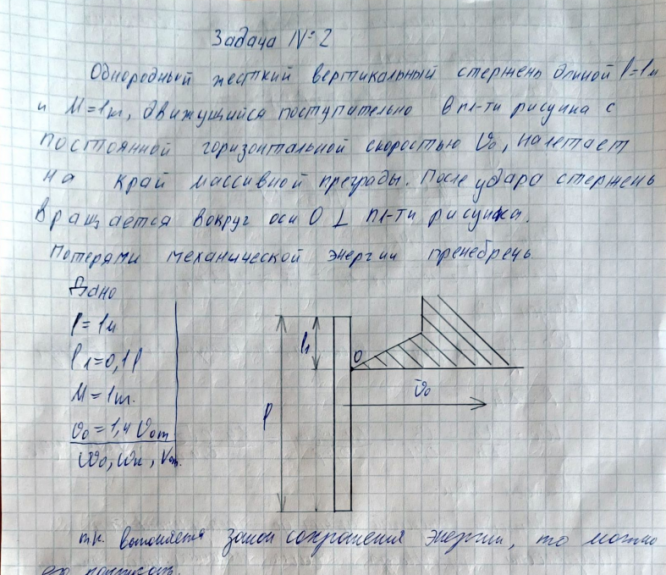 Задача №2
Однородный жесткий вертикальный стержень длиной l=1м
и M=1кг, движущийся поступательно в пл-ти рисунка с
постоянной горизонтальной скоростью v₀, налетает
на край массивной преграды. После удара стержень
вращается вокруг оси O ⊥ пл-ти рисунка.
Потерями механической энергии пренебречь
Дано
l=1м
l₁=0,1l
M=1кг.
v₀=1,4 v₀m
ω₀, ωк, v₀m.
l₁
O
v̄₀
l
т.к. выполняется закон сохранения энергии, то можно
его написать